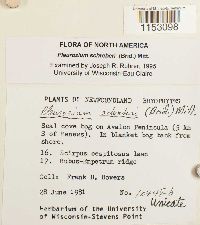 1153098
FLORA OF NORTH AMERICA
Pleurozium schreberi (Brid.) Mitt.
Examined by Joseph R. Rohrer, 1995
University of Wisconsin-Eau Claire
PLANTS OF NEWFOUNDLAND BRYOPHYTES
Pleurozium schreberi (Brid.) Mitt.
Seal cove bog on Avalon Peninsula (5 km
S of In blanket bog back from
shore.
16. Scirpus cespitosus lawn
17. ridge
Coll: Frank D. Bowers
28 June 1981 No.
Unicate
Herbarium of the University
of Wisconsin-Stevens Point